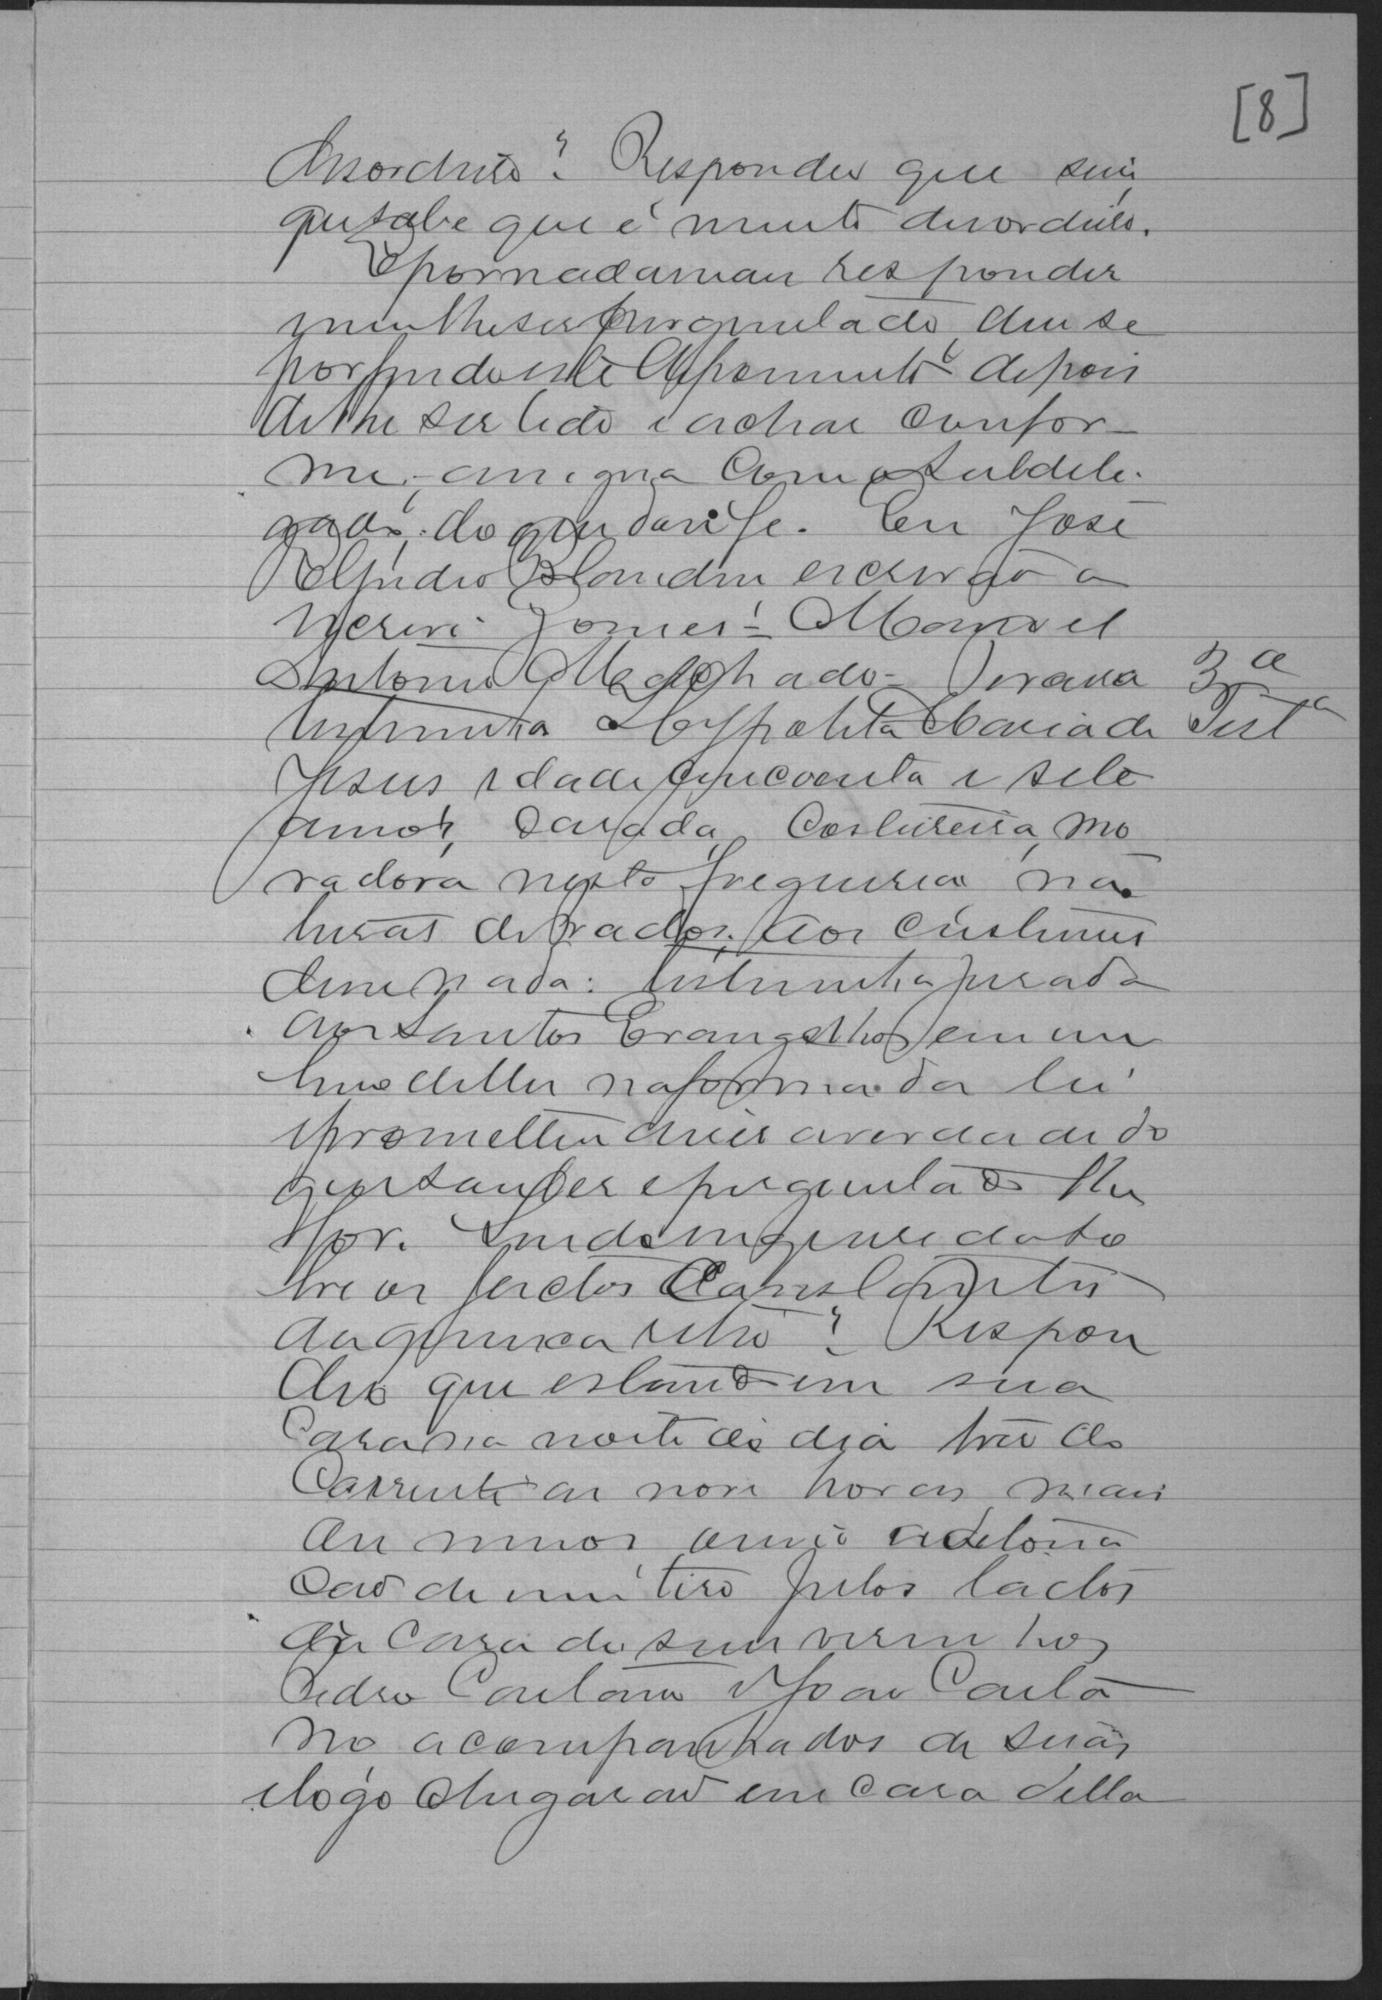 [8]
desordeiro? Respondeu que sim
que sabe que é muito desordeiro.
E por nada mais responder
nem lhe ser perguntado, deu se
por findo este depoimento depois
de lhe ser lido e achar confor-
me, assigna com o subdele-
gado, do que dou fé. Eu José
escrivão o
escrevi. Gomes = Manoel
Antonio Machado = Terceira
3ª Testª
testemunha Hyppolita Maria de
Jesus idade cincoenta e sete
annos, casada, costureira, mo
radora nesta freguesia, na
aos custumes
disse nada: testemunha jurada
aos Santos Evangelhos em um
livro delles na forma da lei
e prometteu dizer a verdade do
que souber e perguntado lhe
for. Sendo inquerida so
bre os factos constantes
da queixa retro? Respon
deu que estando em sua
casa na noite do dia tres do
corrente as nove horas mais
ou menos ouvio a detona
ção de um tiro pelos lados
da casa de seus visinhos
Pedro Caetano e João Caeta
no acompanhados de suas
e logo chegarão em casa della